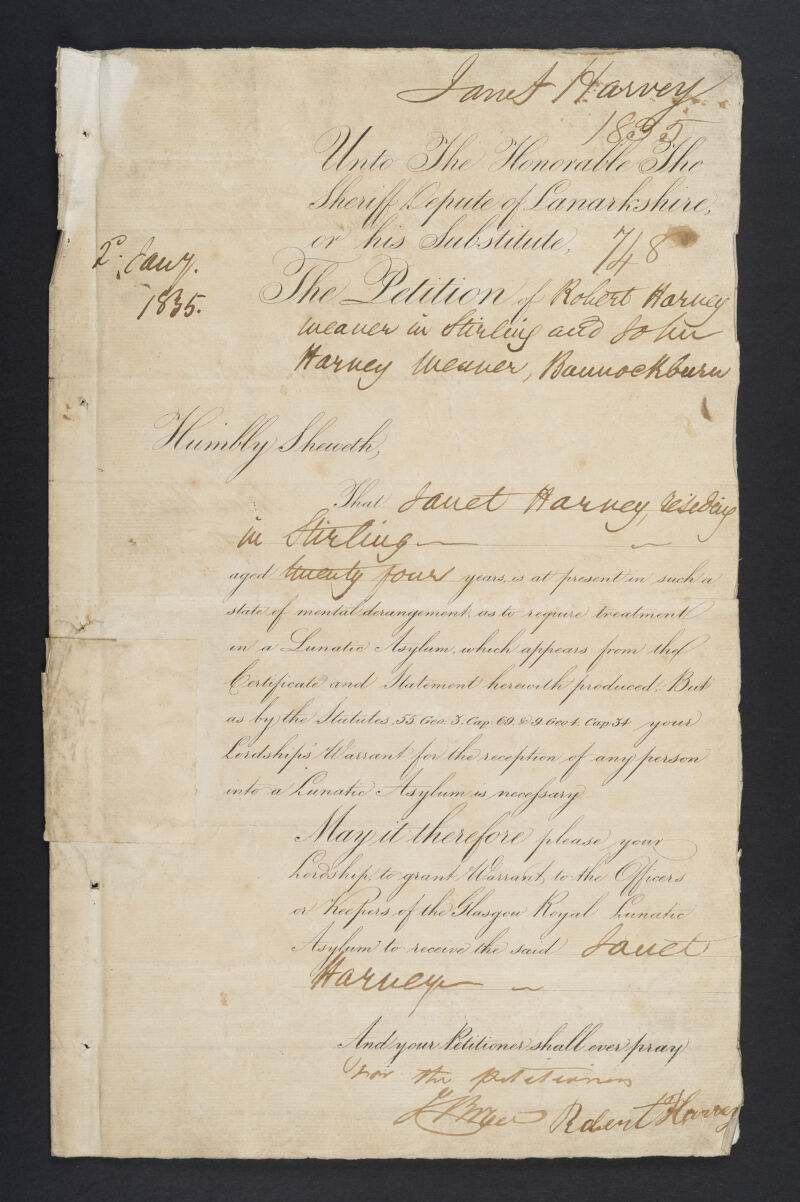 Janet Harvey
1835
Unto The Honorable The
Sheriff Depute of Lanarkshire,
or his Substitute,
748
2d. Jany.
1835.
The Petition of Robert Harvey
weaver in Stirling and John
Harvey weaver, Bannockburn
Humbly Sheweth,
That Janet Harvey, residing
in Stirling
aged twenty four years, is at present in such a
state of mental derangement, as to require treatment
in a Lunatic Asylum, which appears from the
Certificate and Statement herewith produced. But
as by the Statutes, 55. Geo: 3. Cap. 69. & 9. Geo 4. Cap 34 your
Lordship's Warrant for the reception of any person
into a Lunatic Asylum is necessary
May it therefore please your
Lordship, to grant Warrant, to the Officers
or Keepers, of the Glasgow Royal Lunatic
Asylum to receive the said Janet
Harvey
And your Petitioner shall ever pray
For the petitioners
Robert Harvey